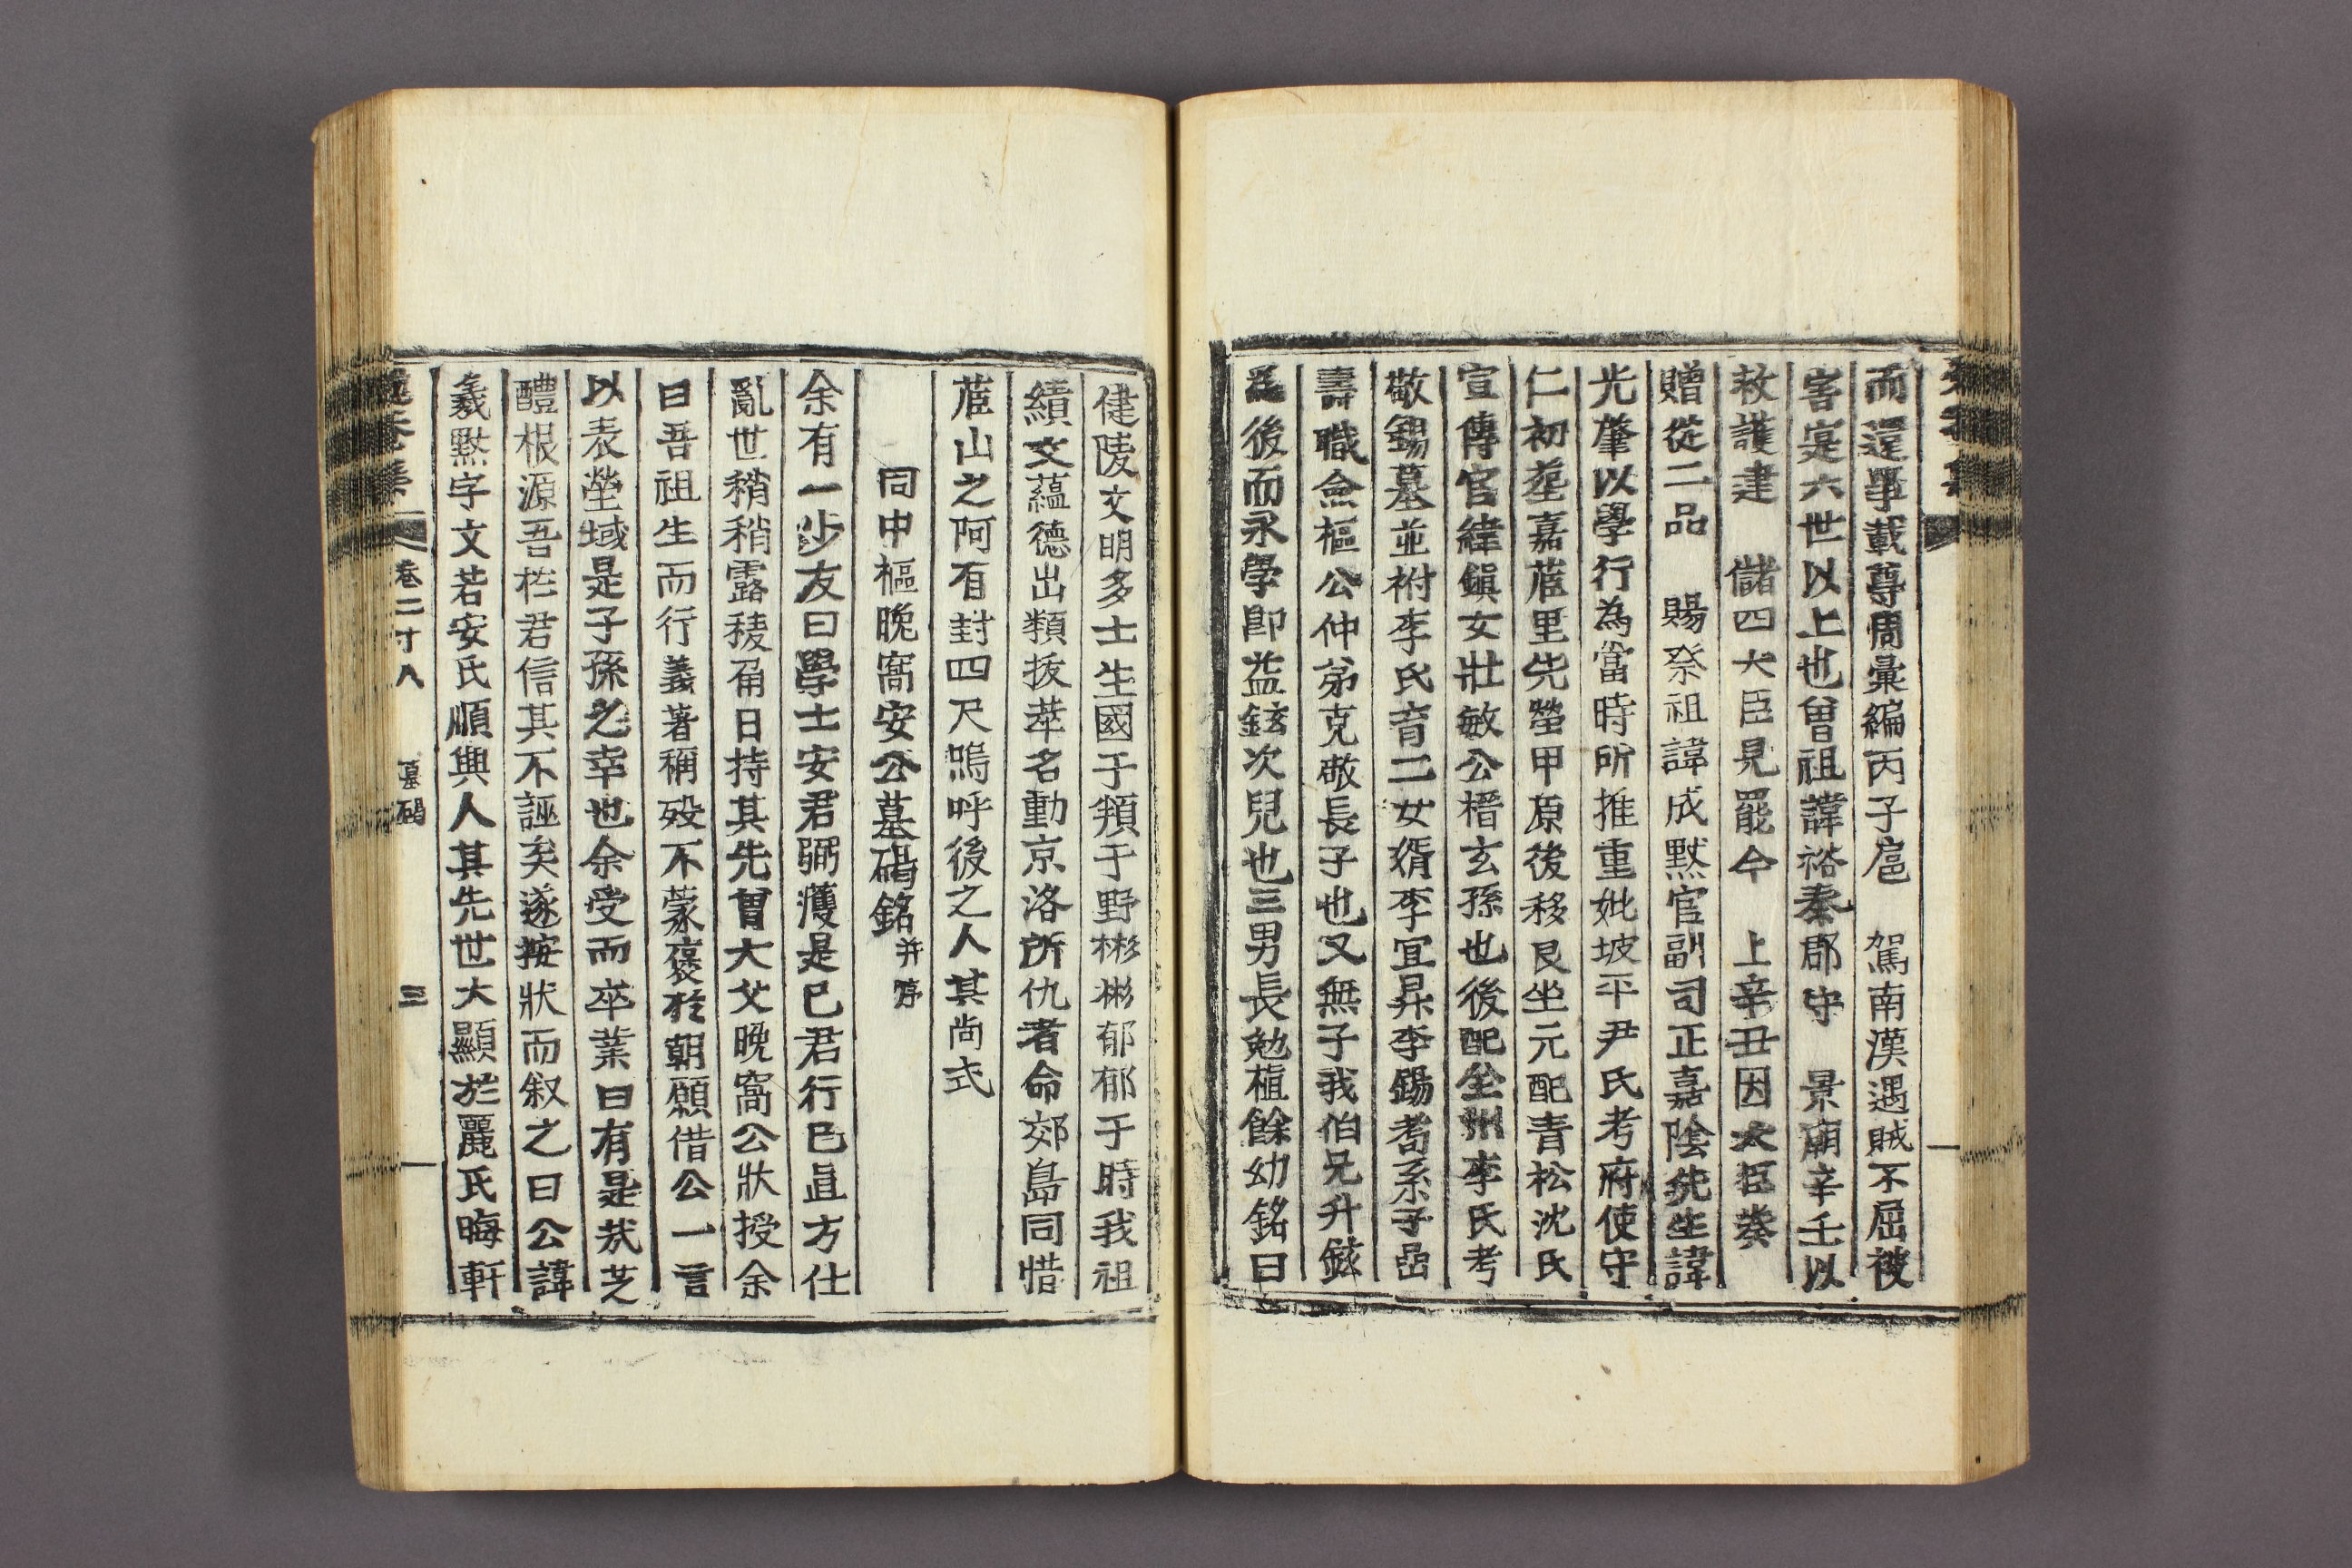 而還事載尊周彙編丙子扈 駕南漢遇賊不屈被
害寔六世以上也曾祖諱裕秦郡守 景廟辛壬以
救護建 儲四大臣見罷今 上辛丑因大臣葵
贈從二品 賜祭祖諱成默官副司正嘉陰先生諱
光肇以學行為當時所推重妣坡平尹氏考府使守
仁初葬嘉蓲里先塋甲原後移艮坐元配青松沈氏
宣傳官緯鎭女壯敏公榗玄孫也後配全州李氏考
敬錫墓並祔李氏育二女壻李宜昇李錫耉系子喦
壽職僉樞公仲弟克敬長子也又無子我伯兄升鉉
爲後而永學卽益鉉次兒也三男長勉植餘幼銘曰
健陵文明多士生國于頖于野彬彬郁郁于時我祖
績文蘊德出類拔萃名動京洛所仇者命郊島同惜
蓲山之阿有封四尺嗚呼後之人其尚式
同中樞晩窩安公墓碣銘并序
余有一少友曰學士安君弼濩是已君行己直方仕
亂世稍稍露稜角日持其先曾大父晩窩公狀授余
曰吾祖生而行義著稱歿不蒙褒於朝願借公一言
以表塋域是子孫之幸也余受而卒業曰有是哉芝
醴根源吾於君信其不誣矣遂按狀而叙之曰公諱
羲默字文若安氏順興人其先世大顯於麗氏晦軒
卷二十八 墓碣 三